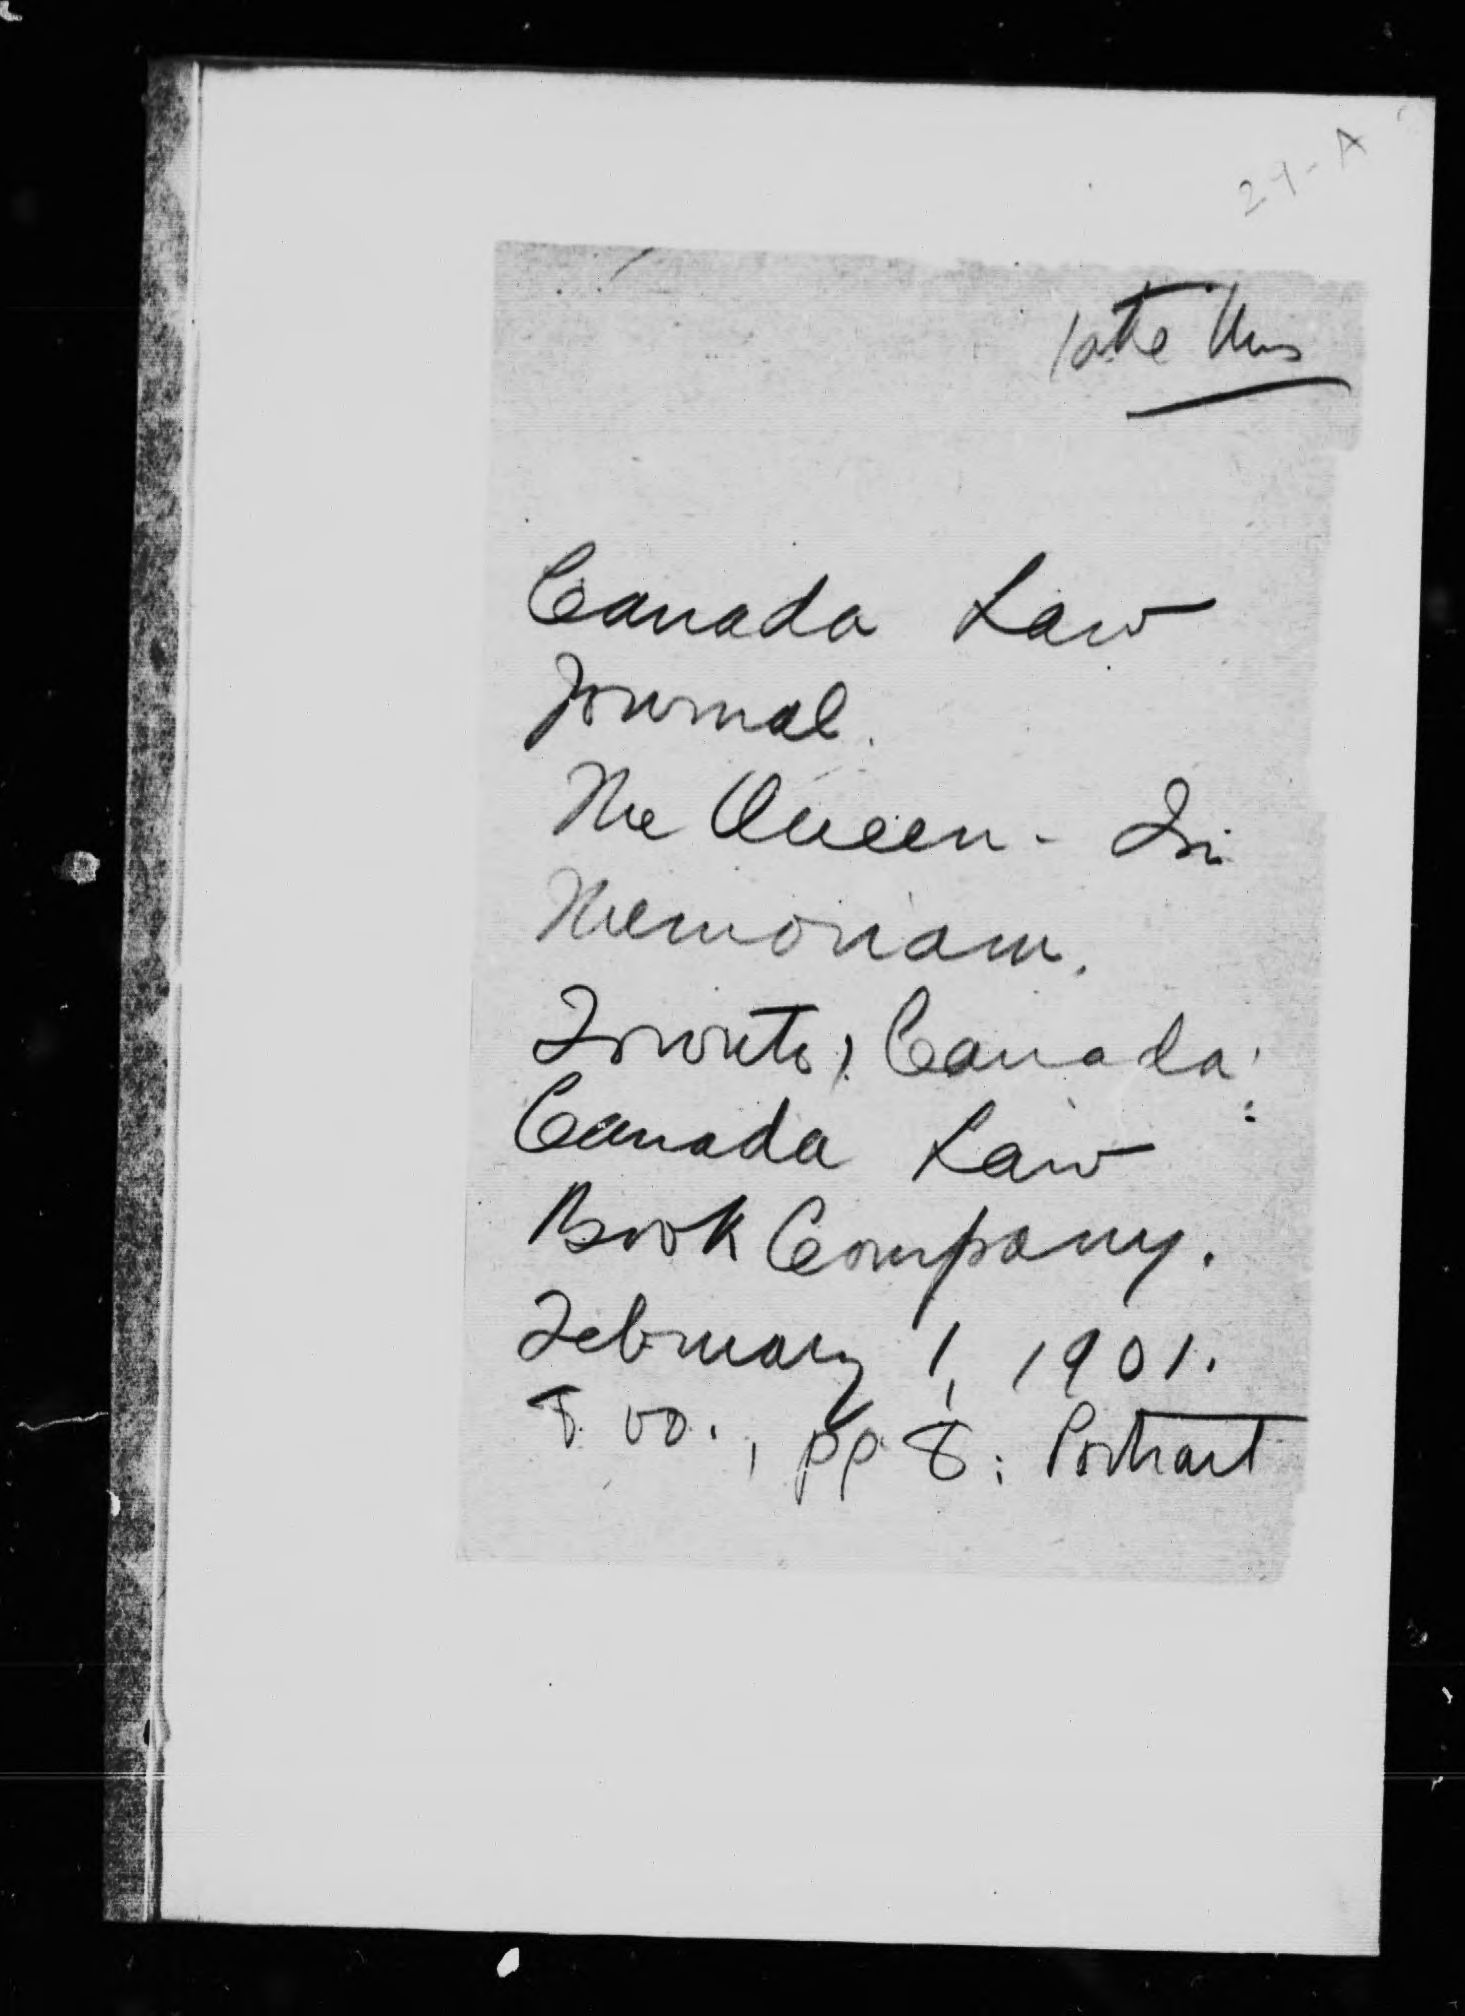 29-A
Canada Law
Journal.
The Queen - In
Memoriam.
Toronto, Canada:
Canada Law
Book Company.
February 1, 1901.
8 vo., pp 8; Portrait